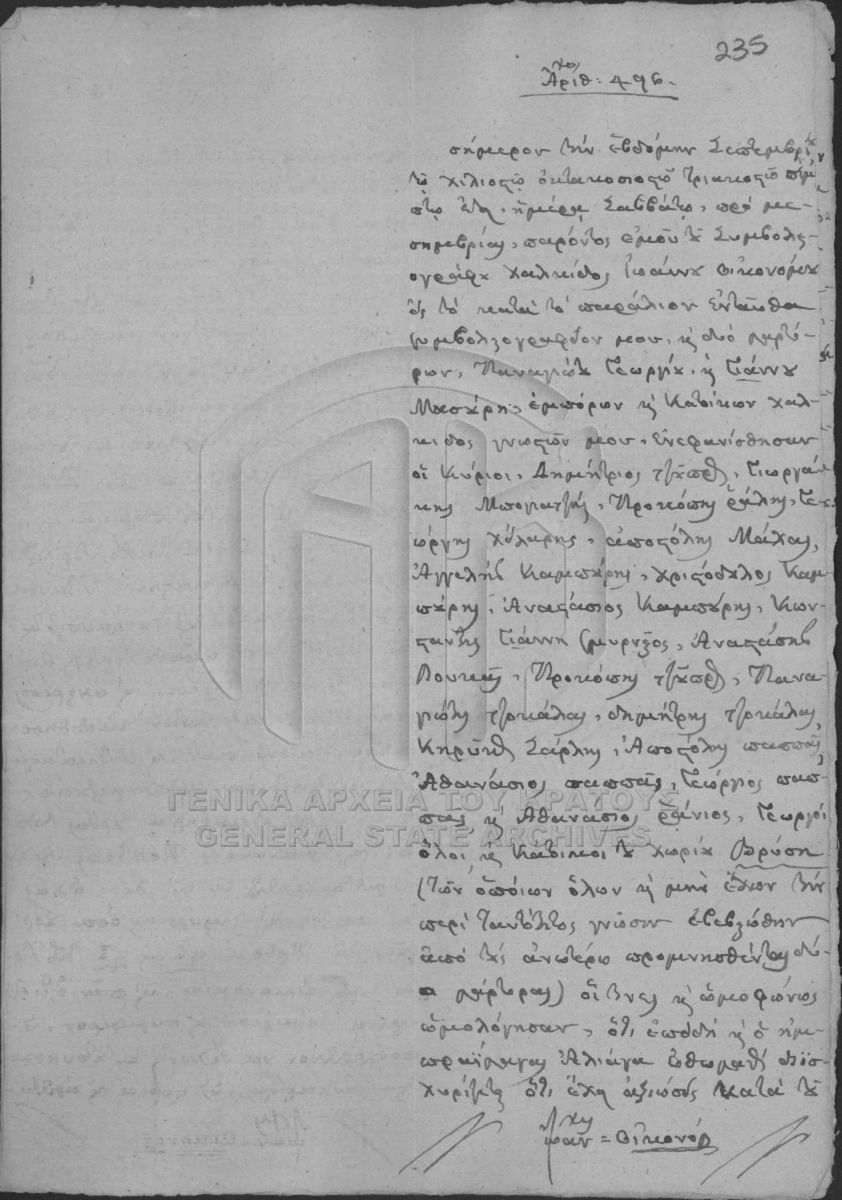 235
Ἀριθ: 496.
σήμερον τὴν ἑβδόμην Σεπτεμβρίου
τοῦ χιλιοστοῦ ὀκτακοσιοστοῦ τριακοστοῦ πέμ-
πτου ἔτους, ἡμέρᾳ Σαββάτῳ, πρό με-
σημβρίας, παρόντος ἐμοῦ τοῦ Συμβολαι-
ογράφου Χαλκίδος Ἰωάννου Οἰκονόμου
εἰς τό κατά τό παράλιον ἐνταῦθα
συμβολαιογραφεῖον μου, καὶ δύο μαρτύ-
ρων, Παναγιώτου Γεωργίου, καὶ Γιάννου
ἐμπόρων καὶ κατοίκων Χαλ-
κίδος γνωστῶν μου, ἐνεφανίσθησαν
οἱ Κύριοι, Δημήτριος Γιωργά-
κης Μπογιατζῆς, Προκόπης Ῥάλης, Γε-
ώργης Χόλαρης, Ἀποστόλης Μάχας,
Ἀγγελής Καμπούρης, Χριστόδουλος Καμ-
πούρης, Ἀναστάσιος Καμπούρης, Κων-
σταντῆς Γιάννη Ἀναστάσης
Προκόπης Πανα-
γιώτης τζοκάλας, δημήτρης τζοκάλας,
Σάρλης, Ἀποστόλης παππᾶς,
Ἀθανάσιος παππᾶς, Γεώργιος παπ-
πᾶς καὶ Ἀθανάσιος ῥάνιος, Γεωργοί
ὅλοι καὶ κάτοικοι τοῦ χωρίου Βρύση
(τῶν ὁποίων ὅλων καὶ μὴ ἔχων τὴν
περί ταυτότητος γνῶσιν ἐβεβαιώθην
ἀπό τούς ἀνωτέρω προμνησθέντας δύ-
ο μάρτυρας) οἵτινες καὶ ὡμοφώνως
ὡμολόγησαν, ὅτι ἐπειδή καὶ ὁ Ἡμε-
πραΐμαγας Ἀλιάγα ὀθωμανός διϊσ-
χυρίζεται ὅτι ἔχει ἀξιώσεις κατά τοῦ
Ἰωάν = Οἰκονόμου